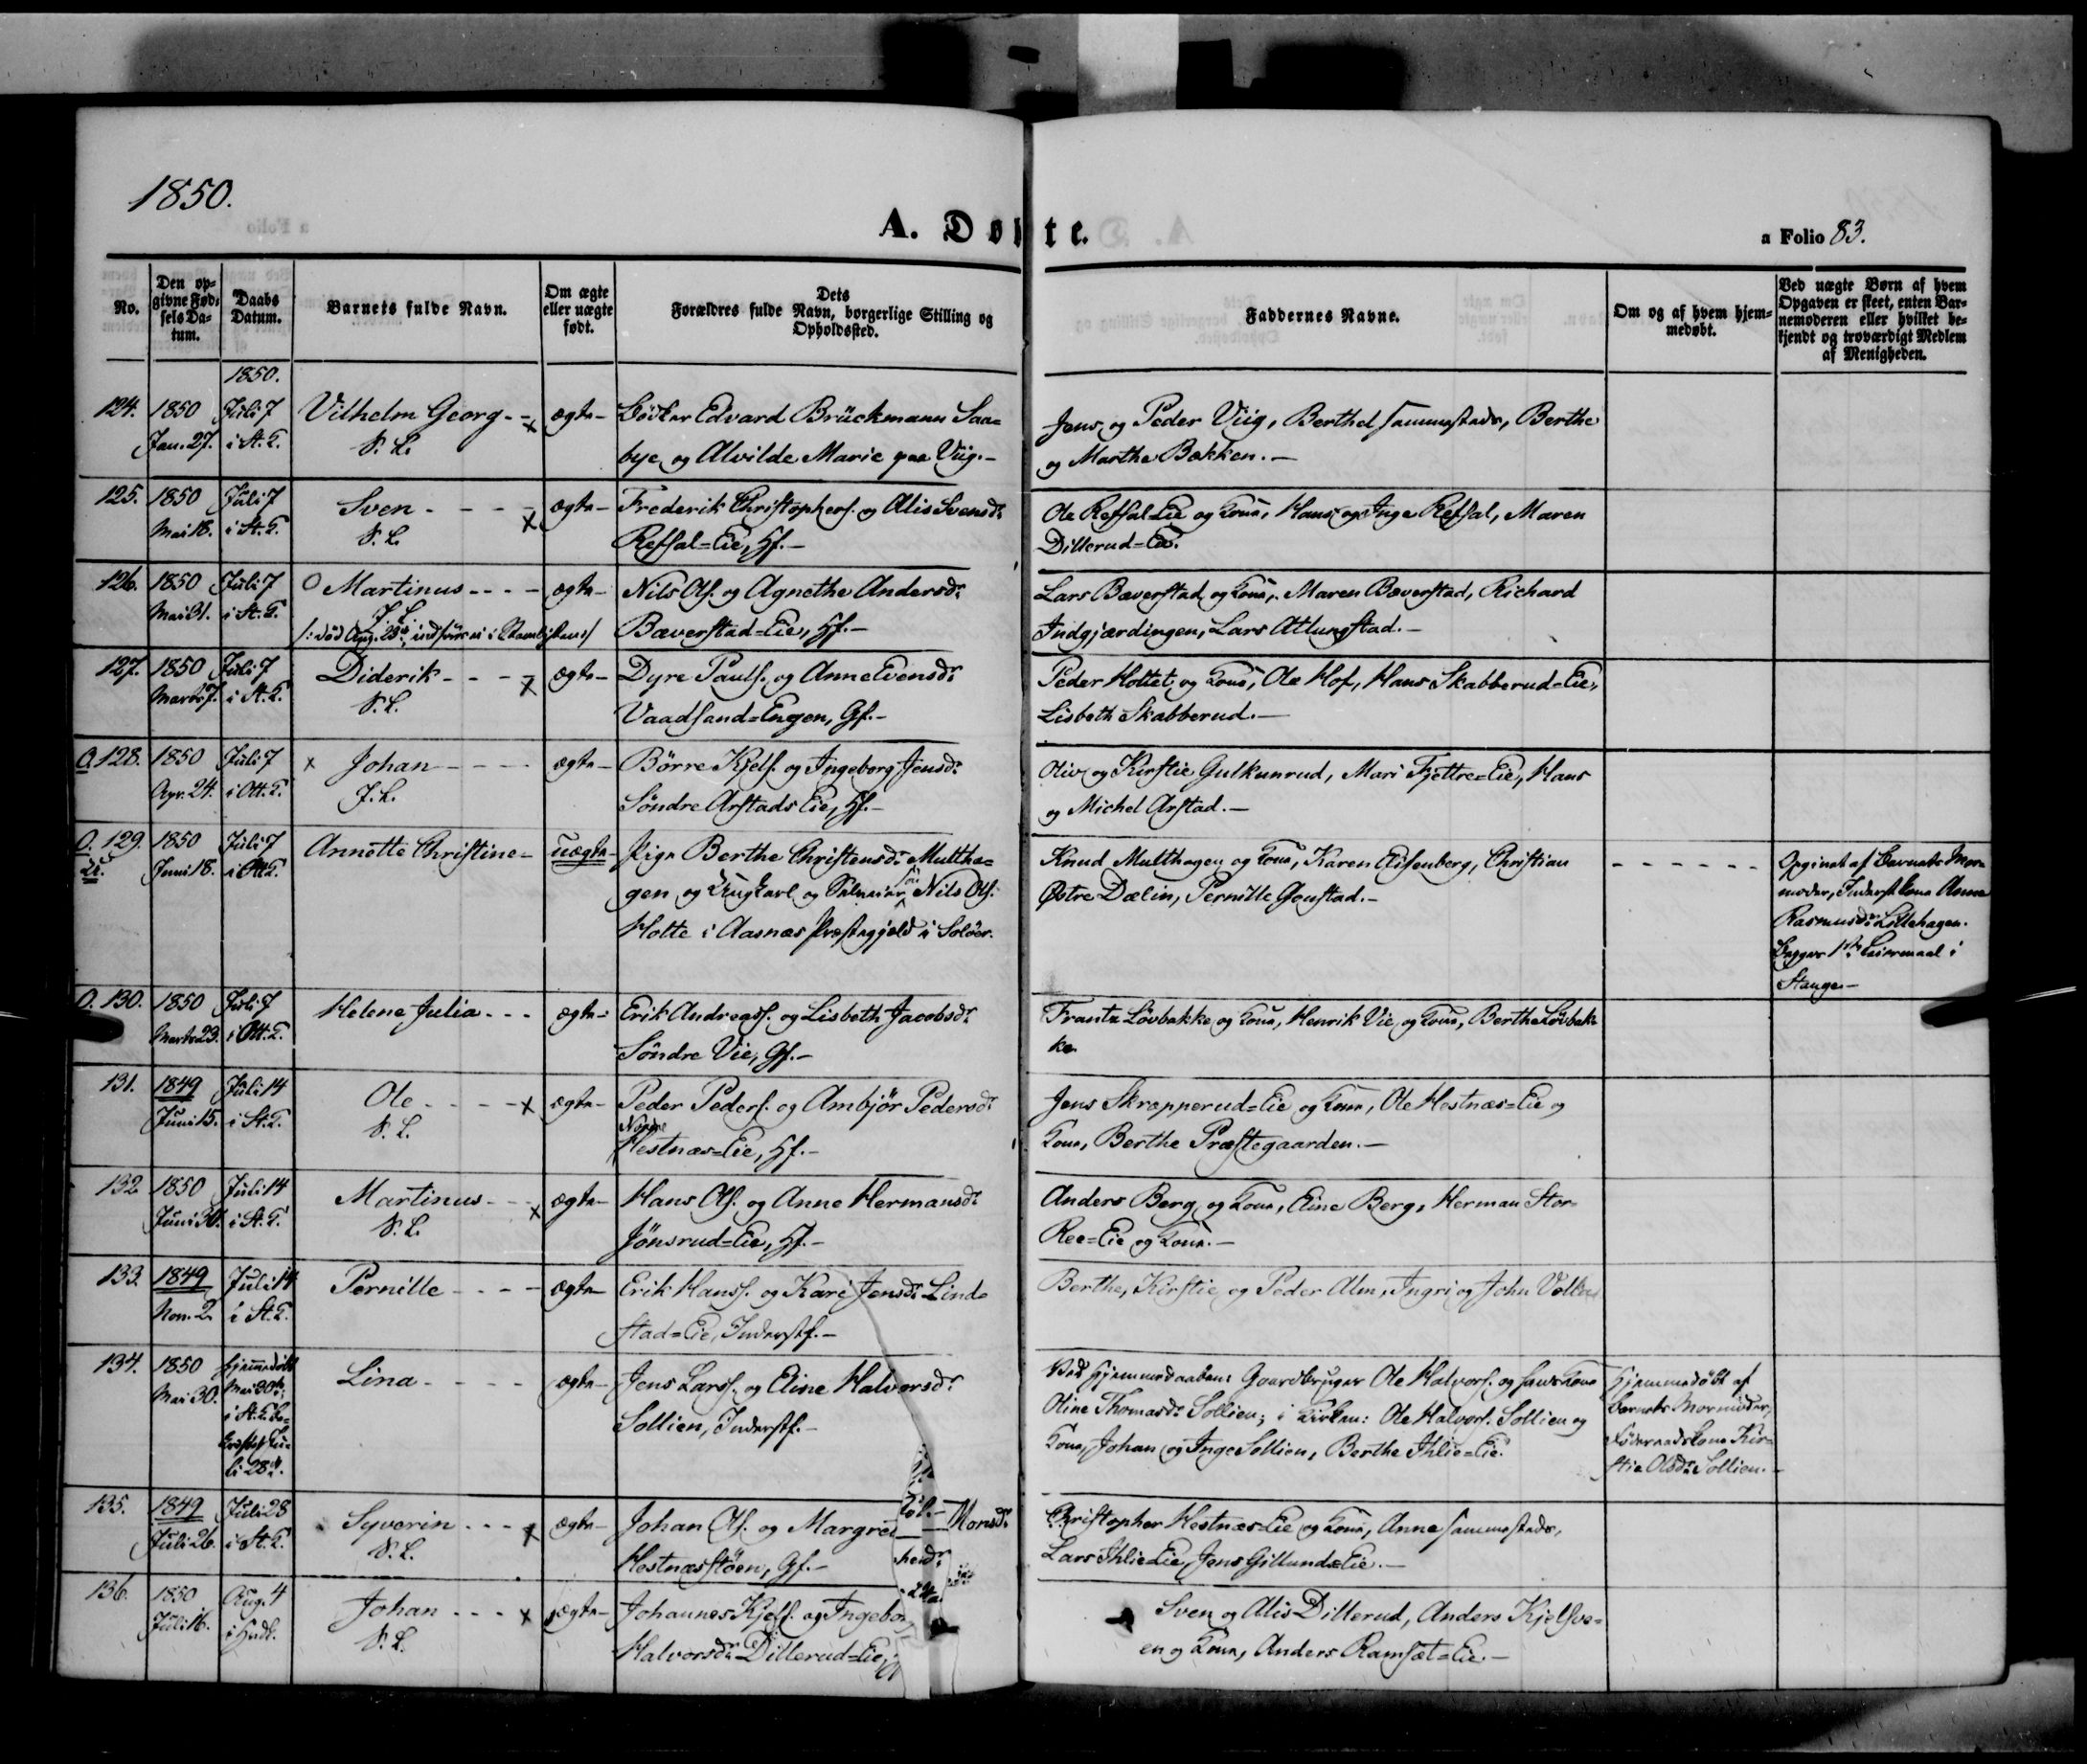 1850.
A. Døbte.
a Folio 83.
No.
Den op-
givne Fød-
sels Da-
tum.
Daabs
Datum.
Barnets fulde Navn.
Om ægte
eller uægte
født.
Dets
Forældres fulde Navn, borgerlige Stilling og
Opholdssted.
Faddernes Navne.
Om og af hvem hjem-
medøbt.
Ved uægte Børn af hvem
Opgaven er skeet, enten Bar-
nemoderen eller hvilket be-
kjendt og troværdigt Medlem
af Menigheden.
1850.
124. 1850 Juli 7 Vilhelm Georg - - ægte - Bödker Edvard Brückmann Saa=
Jan. 27. i St. K. bye og Alvilde Marie paa Viig. -
Jens og Peder Viig, Berthel sammestads, Berthe
og Marthe Bækken. -
125. 1850 Juli 7 Sven - - - - ægte - Frederik Christophers. og Alis Svensdr
Mai 18. i St. K. Refsal=Eie, Hf. -
Ole Refsal=Eie og Kone, Hans og Inge Refsal, Maren
Dillerud=Eie.
126. 1850 Juli 7 O Martinus - - - - ægte - Nils Ols. og Agnethe Andersdr
Mai 31. i St. K. Bæverstad=Eie, Hf. -
Lars Bæverstad og Kone, Maren Bæverstad, Richard
Indgjærdingen, Lars Atlungstad. -
127. 1850 Juli 7 Diderik - - - - ægte - Dyre Pauls. og Anne Evensdr
Marts 7. i St. K. Vaadsand=Engen, Gf. -
Peder Holtet og Kone, Ole Hof, Hans Skabberud=Eie,
Lisbeth Skabberud. -
O. 128. 1850 Juli 7 x Johan - - - - ægte - Börre Kjels. og Ingeborg Jensdr
Apr. 24. i Ott. K. Söndre Arstads Eie, Hf. -
Oliv og Kirstie Gulkunrud, Mari Fjettre=Eie, Hans
og Michel Arstad. -
O. 129. 1850 Juli 7 Annette Christine - uægte - Pige Berthe Christensdr Multha=
Juni 18. gen og Ungkarl og Nils Ols.
Holte i Aasnæs Præstegjeld i Solöer.
Knud Multhagen og Kone, Karen Eisenberg, Christian
Östre Dælin, Pernille Gonstad. -
Opgivet af Barnets Mor=
moder, Inderst Kone Anne
Rasmusdr Lillehagen.
Begges 1ste Leiermaal i
Stange. -
O. 130. 1850 Juli 7 Helene Julia - - - ægte - Erik Andreass. og Lisbeth Jacobsdr
Marts 23. i Ott. K. Söndre Vie, Gf. -
Frantz Lövbakke og Kone, Henrik Vie og Kone, Berthe Lövbak=
ke.
131. 1849 Juli 14 Ole - - - - ægte - Peder Peders. og Ambjör Pedersdr
Juni 15. i St. K. Nordre
Hestnæs=Eie, Hf. -
Jens Skrapperud=Eie og Kone, Ole Hestnæs=Eie og
Kone, Berthe Præstegaarden. -
132 1850 Juli 14 Martinus - - - ægte - Hans Ols. og Anne Hermansdr
Juni 30. i St. K. Jönsrud=Eie, Hf. -
Anders Berg og Kone, Eline Berg, Herman Stor=
Ree=Eie og Kone. -
133. 1849 Juli 14 Pernille - - - - ægte Erik Hanss. og Kari Jensdr Linde
Nov. 2. i St. K. stad=Eie, Inderstf. -
Berthe, Kirstie og Peder Alm, Ingri og John
134. 1850 Hjemmedöbt Lina - - - - ægte - Jens Larss. og Eline Halvorsdr
Mai 30. Mai 30te; Sollien, Inderstf. -
i St. K. be=
kræftet Ju=
li 28de.
Ved Hjemmedaaben: Gaardbruger Ole Halvors. og hans Kone
Oline Thomasdr Sollien; i Kirken: Ole Halvors. Sollien og
Kone, Johan og Inge Sollien, Berthe Ihlie=Eie.
Hjemmedöbt af
Barnets Mormoder,
Föderaadskone Kir=
stie Olsdr Sollien. -
135. 1849 Juli 28 Syverin - - - ægte - Johan Ols. og Margre Monsdr
Juli 26. i St. K. Hestnæsstöen, Gf. -
Christopher Hestnæs=Eie og Kone, Anne sammestads,
Lars Ihlie=Eie, Jens Gillund=Eie. -
136. 1850 Aug. 4 Johan - - - ægte - Johannes Kjels. og Ingebor
Juli 16. Halvorsdr Dillerud=Eie,
Sven og Alis Dillerud, Anders Kjelsve=
en og Kone, Anders Ramsæt=Eie. -